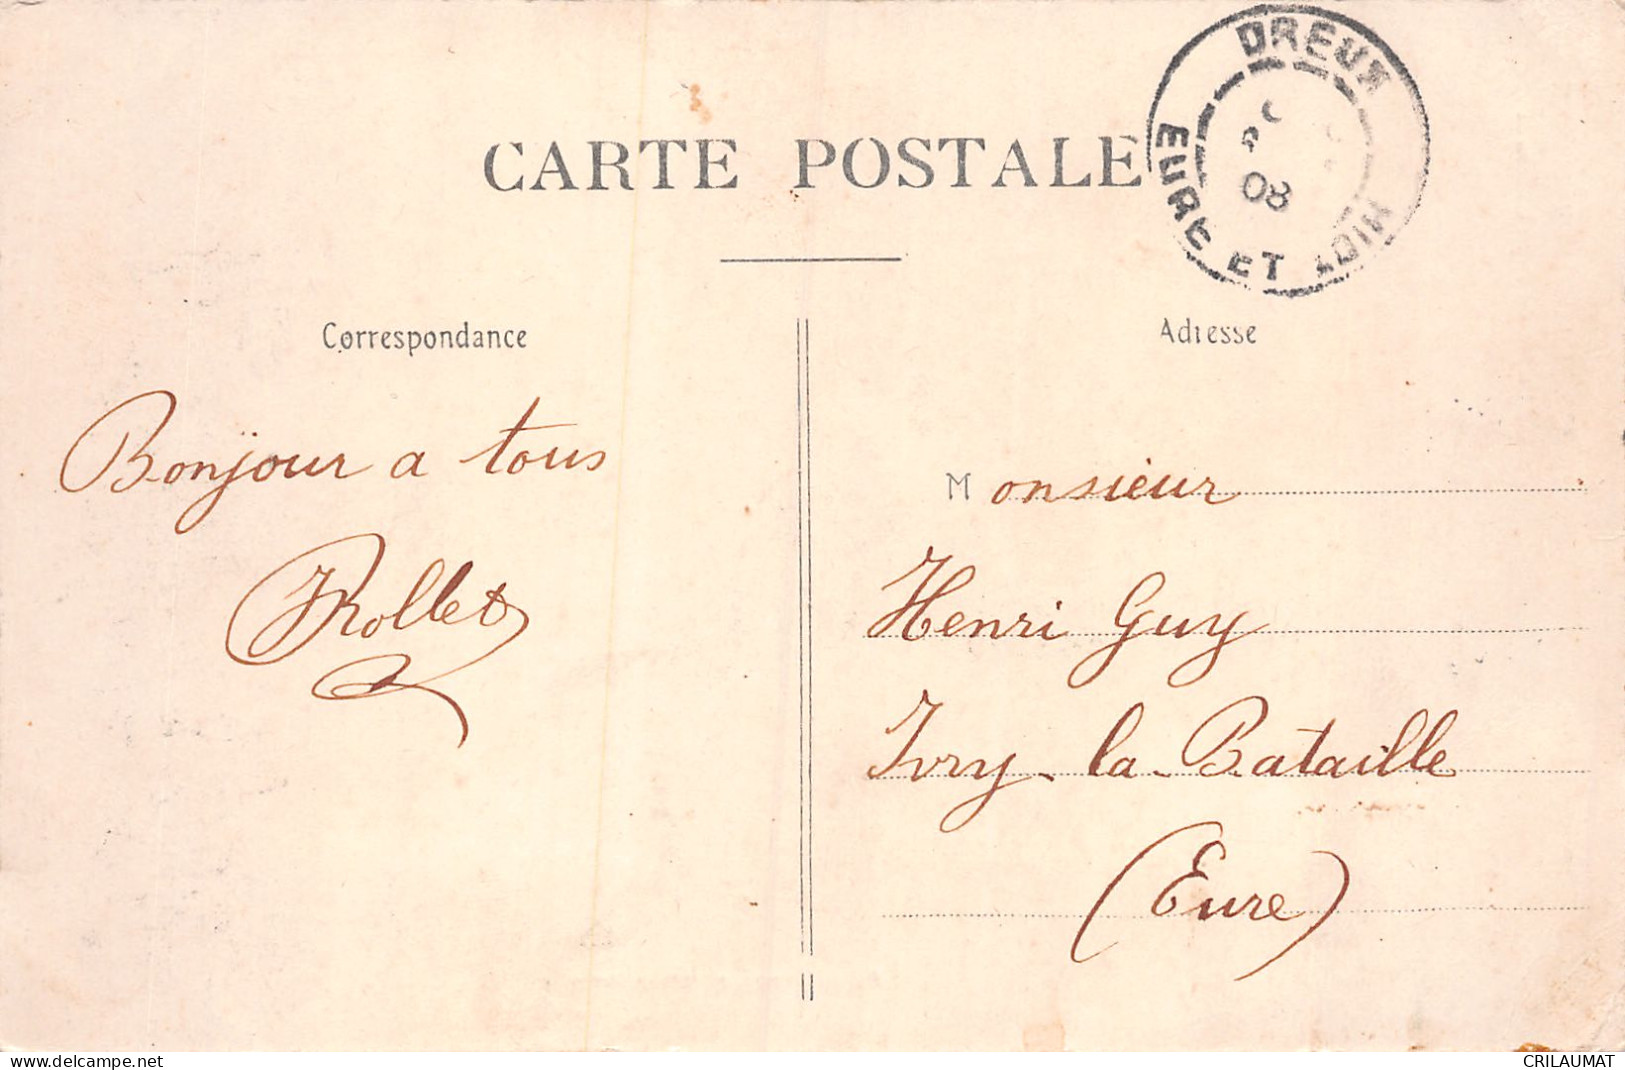 CARTE POSTALE
DREUX
08
EURE ET LOIR
Correspondance
Adresse
Bonjour a tous
Rollet
Monsieur
Henri Guy
Ivry-la-Bataille
(Eure)
delcampe.net
CRILAUMAT